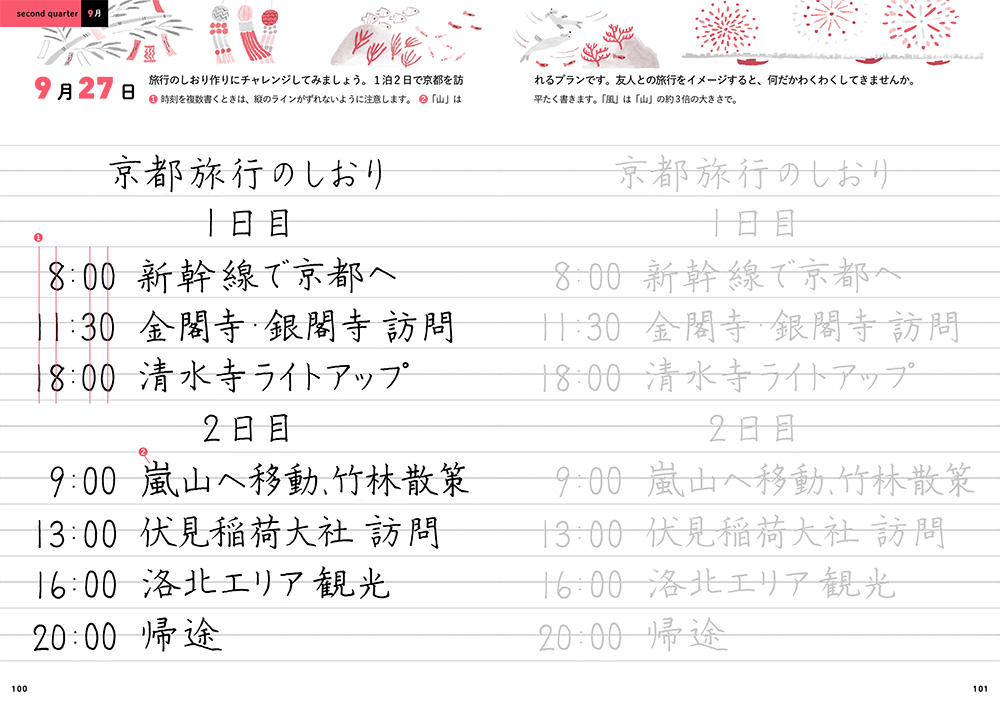 second quarter 9月
9月27日
旅行のしおり作りにチャレンジしてみましょう。1泊2日で京都を訪
れるプランです。友人との旅行をイメージすると、何だかわくわくしてきませんか。
❶時刻を複数書くときは、縦のラインがずれないように注意します。 ❷「山」は
平たく書きます。「風」は「山」の約3倍の大きさで。
京都旅行のしおり
1日目
❶
8:00 新幹線で京都へ
11:30 金閣寺・銀閣寺 訪問
18:00 清水寺ライトアップ
2日目
❷
9:00 嵐山へ移動、竹林散策
13:00 伏見稲荷大社 訪問
16:00 洛北エリア観光
20:00 帰途
100
京都旅行のしおり
1日目
8:00 新幹線で京都へ
11:30 金閣寺・銀閣寺 訪問
18:00 清水寺ライトアップ
2日目
9:00 嵐山へ移動、竹林散策
13:00 伏見稲荷大社 訪問
16:00 洛北エリア観光
20:00 帰途
101